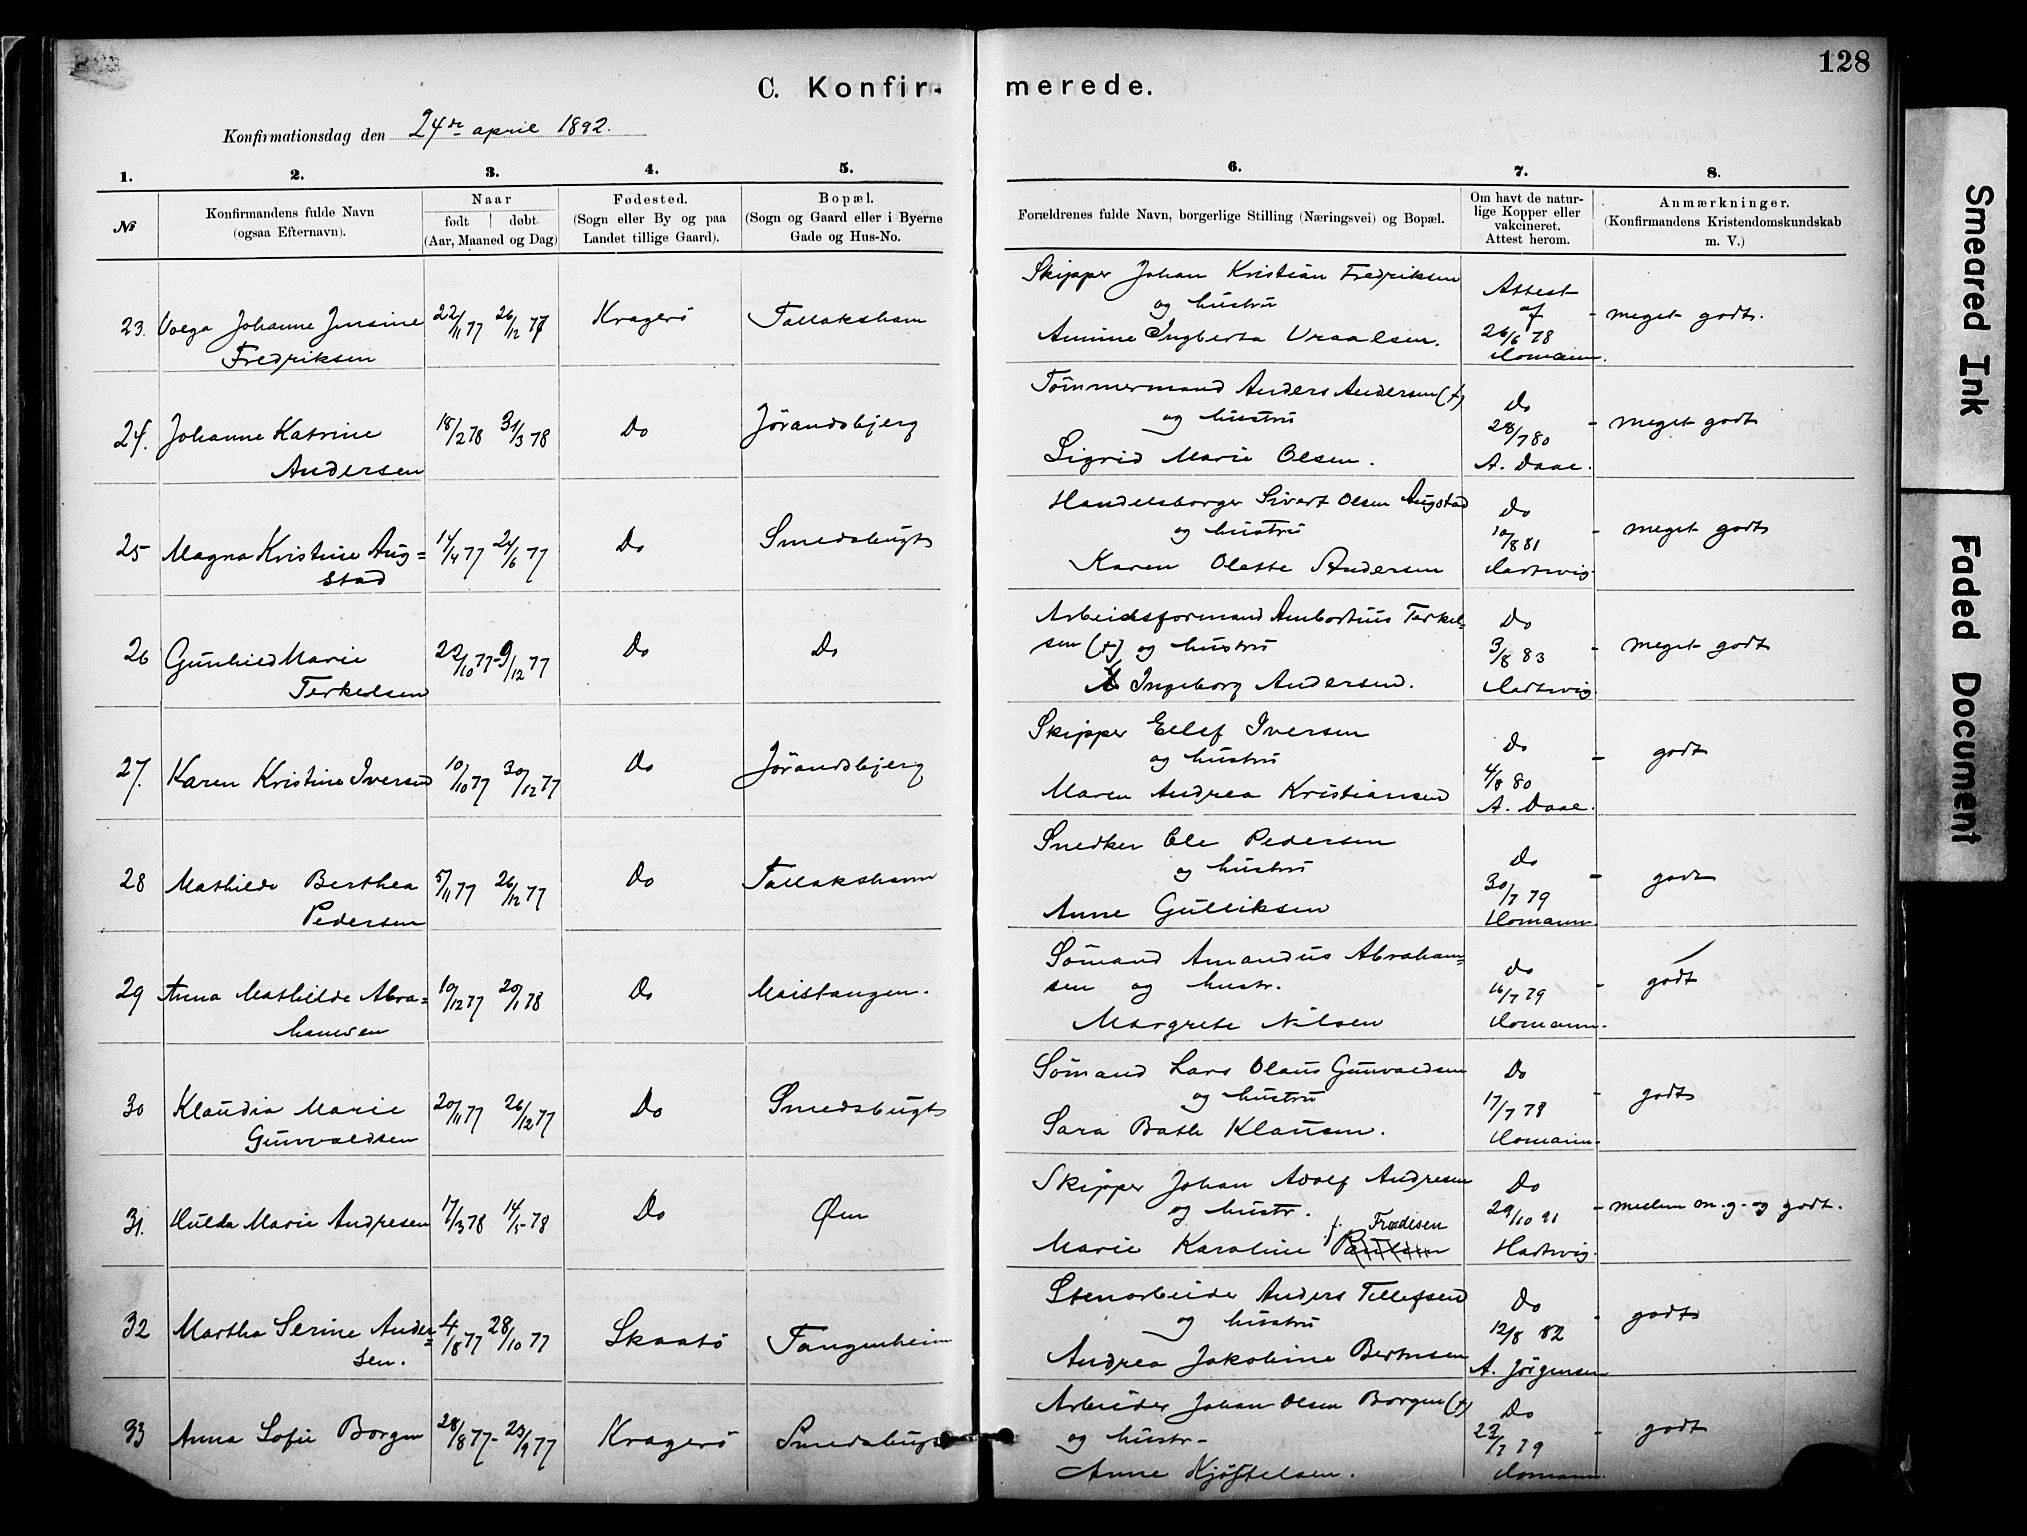 128
C. Konfir- merede.
Konfirmationsdag den 24de april 1892.
1. 2. 3. 4. 5. 6. 7. 8.
№
Konfirmandens fulde Navn
(ogsaa Efternavn).
Naar
født døbt
(Aar, Maaned og Dag)
Fødested.
(Sogn eller By og paa
Landet tillige Gaard).
Bopæl.
(Sogn og Gaard eller i Byerne
Gade og Hus-No.
Forældrenes fulde Navn, borgerlige Stilling (Næringsvei) og Bopæl.
Om havt de natur-
lige Kopper eller
vakcineret.
Attest herom.
Anmærkninger.
(Konfirmandens Kristendomskundskab
m. V.)
23. Valga Johanne Jensine
Fredriksen
22/11 77 26/12 77
Kragerö
Tallakshavn
Skipper Johan Kristian Fredriksen
og hustru
Amine Ingberta Vraalsen.
Attest
af
26/6 78
Homann.
- meget godt.
24. Johanne Katrine
Andersen
18/2 78 31/3 78
Do
Jørandsbjerg
Tömmermand Anders Andersen (†)
og hustru
Sigrid Marie Olsen.
Do
28/7 80
A. Daae.
- meget godt
25 Magna Kristine Aug=
stad
14/4 77 24/6 77
Do
Smedsbugt
Handelsborger Sivert Olsen Augstad
og hustru
Karen Olette Andersen
Do
10/8 81
Hartwig.
- meget godt
26 Gunhild Marie
Terkelsen
22/10 77 - 9/12 77
Do
Do
Arbeidsformand Ambortius Terkel=
sen (†) og hustru
Ingeborg Andersen.
Do
3/8 83
Hartwig.
- meget godt
27. Karen Kristine Iversen
10/10 77 30/12 77
Do
Jørandsbjerg
Skipper Ellef Iversen
og hustru
Maren Andrea Kristiansen
Do
4/8 80
A. Daae.
- godt
28 Mathilde Berthea
Pedersen
5/11 77 26/12 77
Do
Tallakshavn
Snedker Ole Pedersen
og hustru
Anne Gulliksen
Do
30/7 79
Homann.
- godt
29 Anna Mathilde Abra=
hamsen
10/12 77 20/1 78
Do
Maistangen.
Sömand Amandus Abraham=
sen og hustr.
Margrete Nilsen
Do
16/7 79
Homann.
- godt
30 Klaudia Marie
Gunvaldsen
20/11 77 26/12 77
Do
Smedsbugt
Sömand Lars Olaus Gunvaldsen
og hustru
Sara Bath Klausen.
Do
17/7 78
Homann.
- godt
31. Hulda Marie Andresen
17/3 78 14/5 78
Do
Øen
Skipper Johan Adolf Andresen
og hustr.
f. Fradesen
Marie Karoline Paulsen
Do
29/10 91
Hartwig.
- mellem m. g. og godt.
32 Martha Serine Ander=
sen.
4/8 77 28/10 77
Skaatö
Tangenheim
Stenarbeider Anders Tellefsen
og hustru
Andrea Jakobine Berntsen
Do
12/8 82
A. Jörgensen
- godt
33 Anna Sofie Borgen
28/8 77 - 23/9 77
Kragerö
Smedsbugt
Arbeider Johan Olsen Borgen (†)
og hustr-
Anne Kjöstelsen.
Do
23/7 79
Homann.
- godt
Smeared Ink
Faded Document